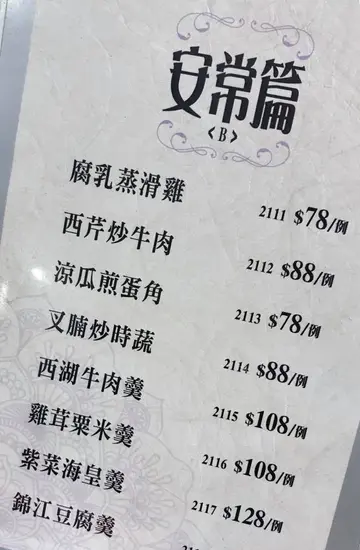 安常篇
<B>
腐乳蒸滑雞 2111 $78/例
西芹炒牛肉 2112 $88/例
涼瓜煎蛋角 2113 $78/例
叉腩炒時蔬 2114 $88/例
西湖牛肉羹 2115 $108/例
雞茸粟米羹 2116 $108/例
紫菜海皇羹 2117 $128/例
錦江豆腐羹